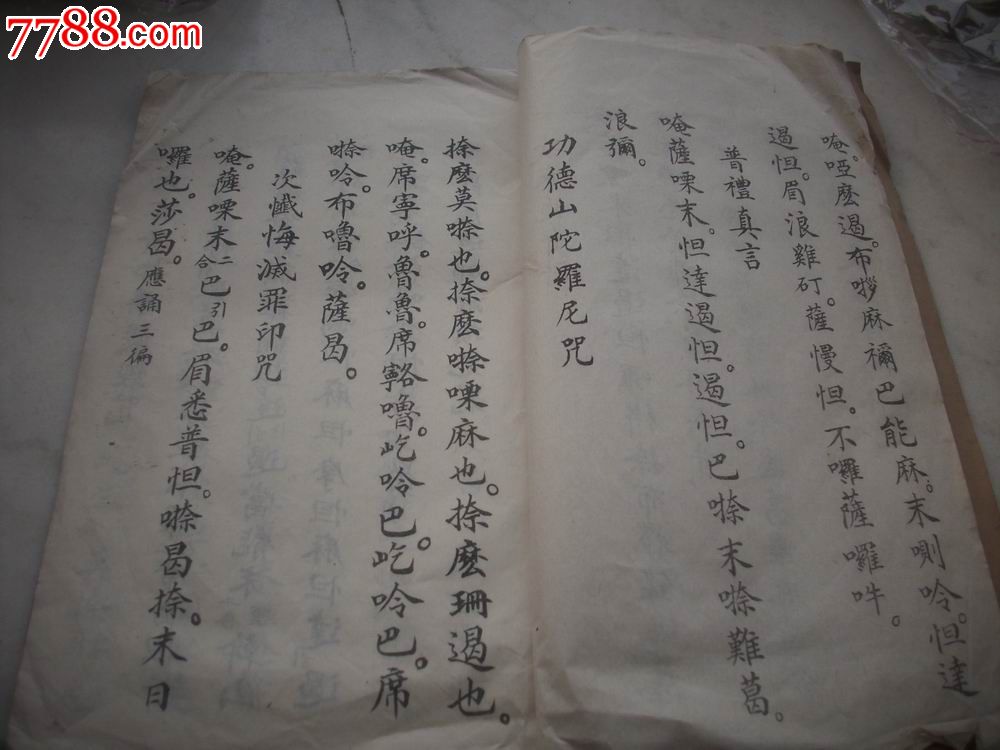 7788.com
唵。啞麽遏。布㘄麻禰巴能麻。末唎唥。怛達
遏怛。眉浪雞矴。薩慢怛。不囉薩囉吽。
普禮真言
唵薩㗚末。怛達遏怛。遏怛。巴㗚末㗚難葛。
浪彌。
功德山陀羅尼咒
捺麽莫㗚也。捺麽㗚㗚麻也。捺麽珊遏也。
唵。席寧呼。魯魯。席谿嚕。屹唥巴。屹唥巴。席
㗚唥。布嚕唥。薩曷。
次懺悔滅罪印咒
唵。薩㗚末二合巴引巴。眉悉普怛。㗚曷捺。末日
囉也。莎曷。應誦三徧